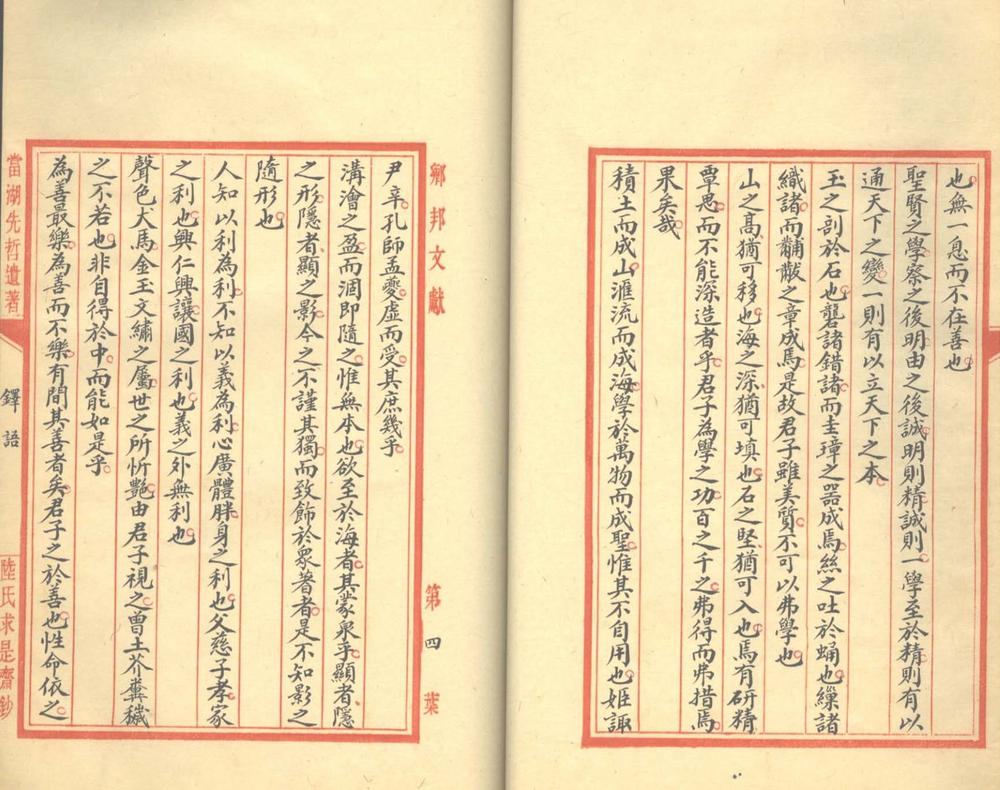 也無一息而不在善也
聖賢之學察之後明由之後誠明則精誠則一學至於精則有以
通天下之變一則有以立天下之本
玉之剖於石也礱諸錯諸而圭璋之器成焉絲之吐於蛹也繅諸
織諸而黼黻之章成焉是故君子雖美質不可以弗學也
山之高猶可移也海之深猶可填也石之堅猶可入也焉有研精
覃思而不能深造者乎君子為學之功百之千之弗得而弗措焉
果矣哉
積土而成山滙流而成海學於萬物而成聖惟其不自用也姬諏
鄉邦文獻
第四葉
尹辛孔師孟夔虛而受其庶幾乎
溝澮之盈而涸即隨之惟無本也欲至於海者其蒙泉乎顯者隱
之形隱者顯之影今之不謹其獨而致飾於衆著者是不知影之
隨形也
人知以利為利不知以義為利心廣體胖身之利也父慈子孝家
之利也興仁興讓國之利也義之外無利也
聲色犬馬金玉文繡之屬世之所忻艷由君子視之曾土芥糞穢
之不若也非自得於中而能如是乎
為善最樂為善而不樂有間其善者矣君子之於善也性命依之
當湖先哲遺著
鐸語
陸氏求是齋鈔